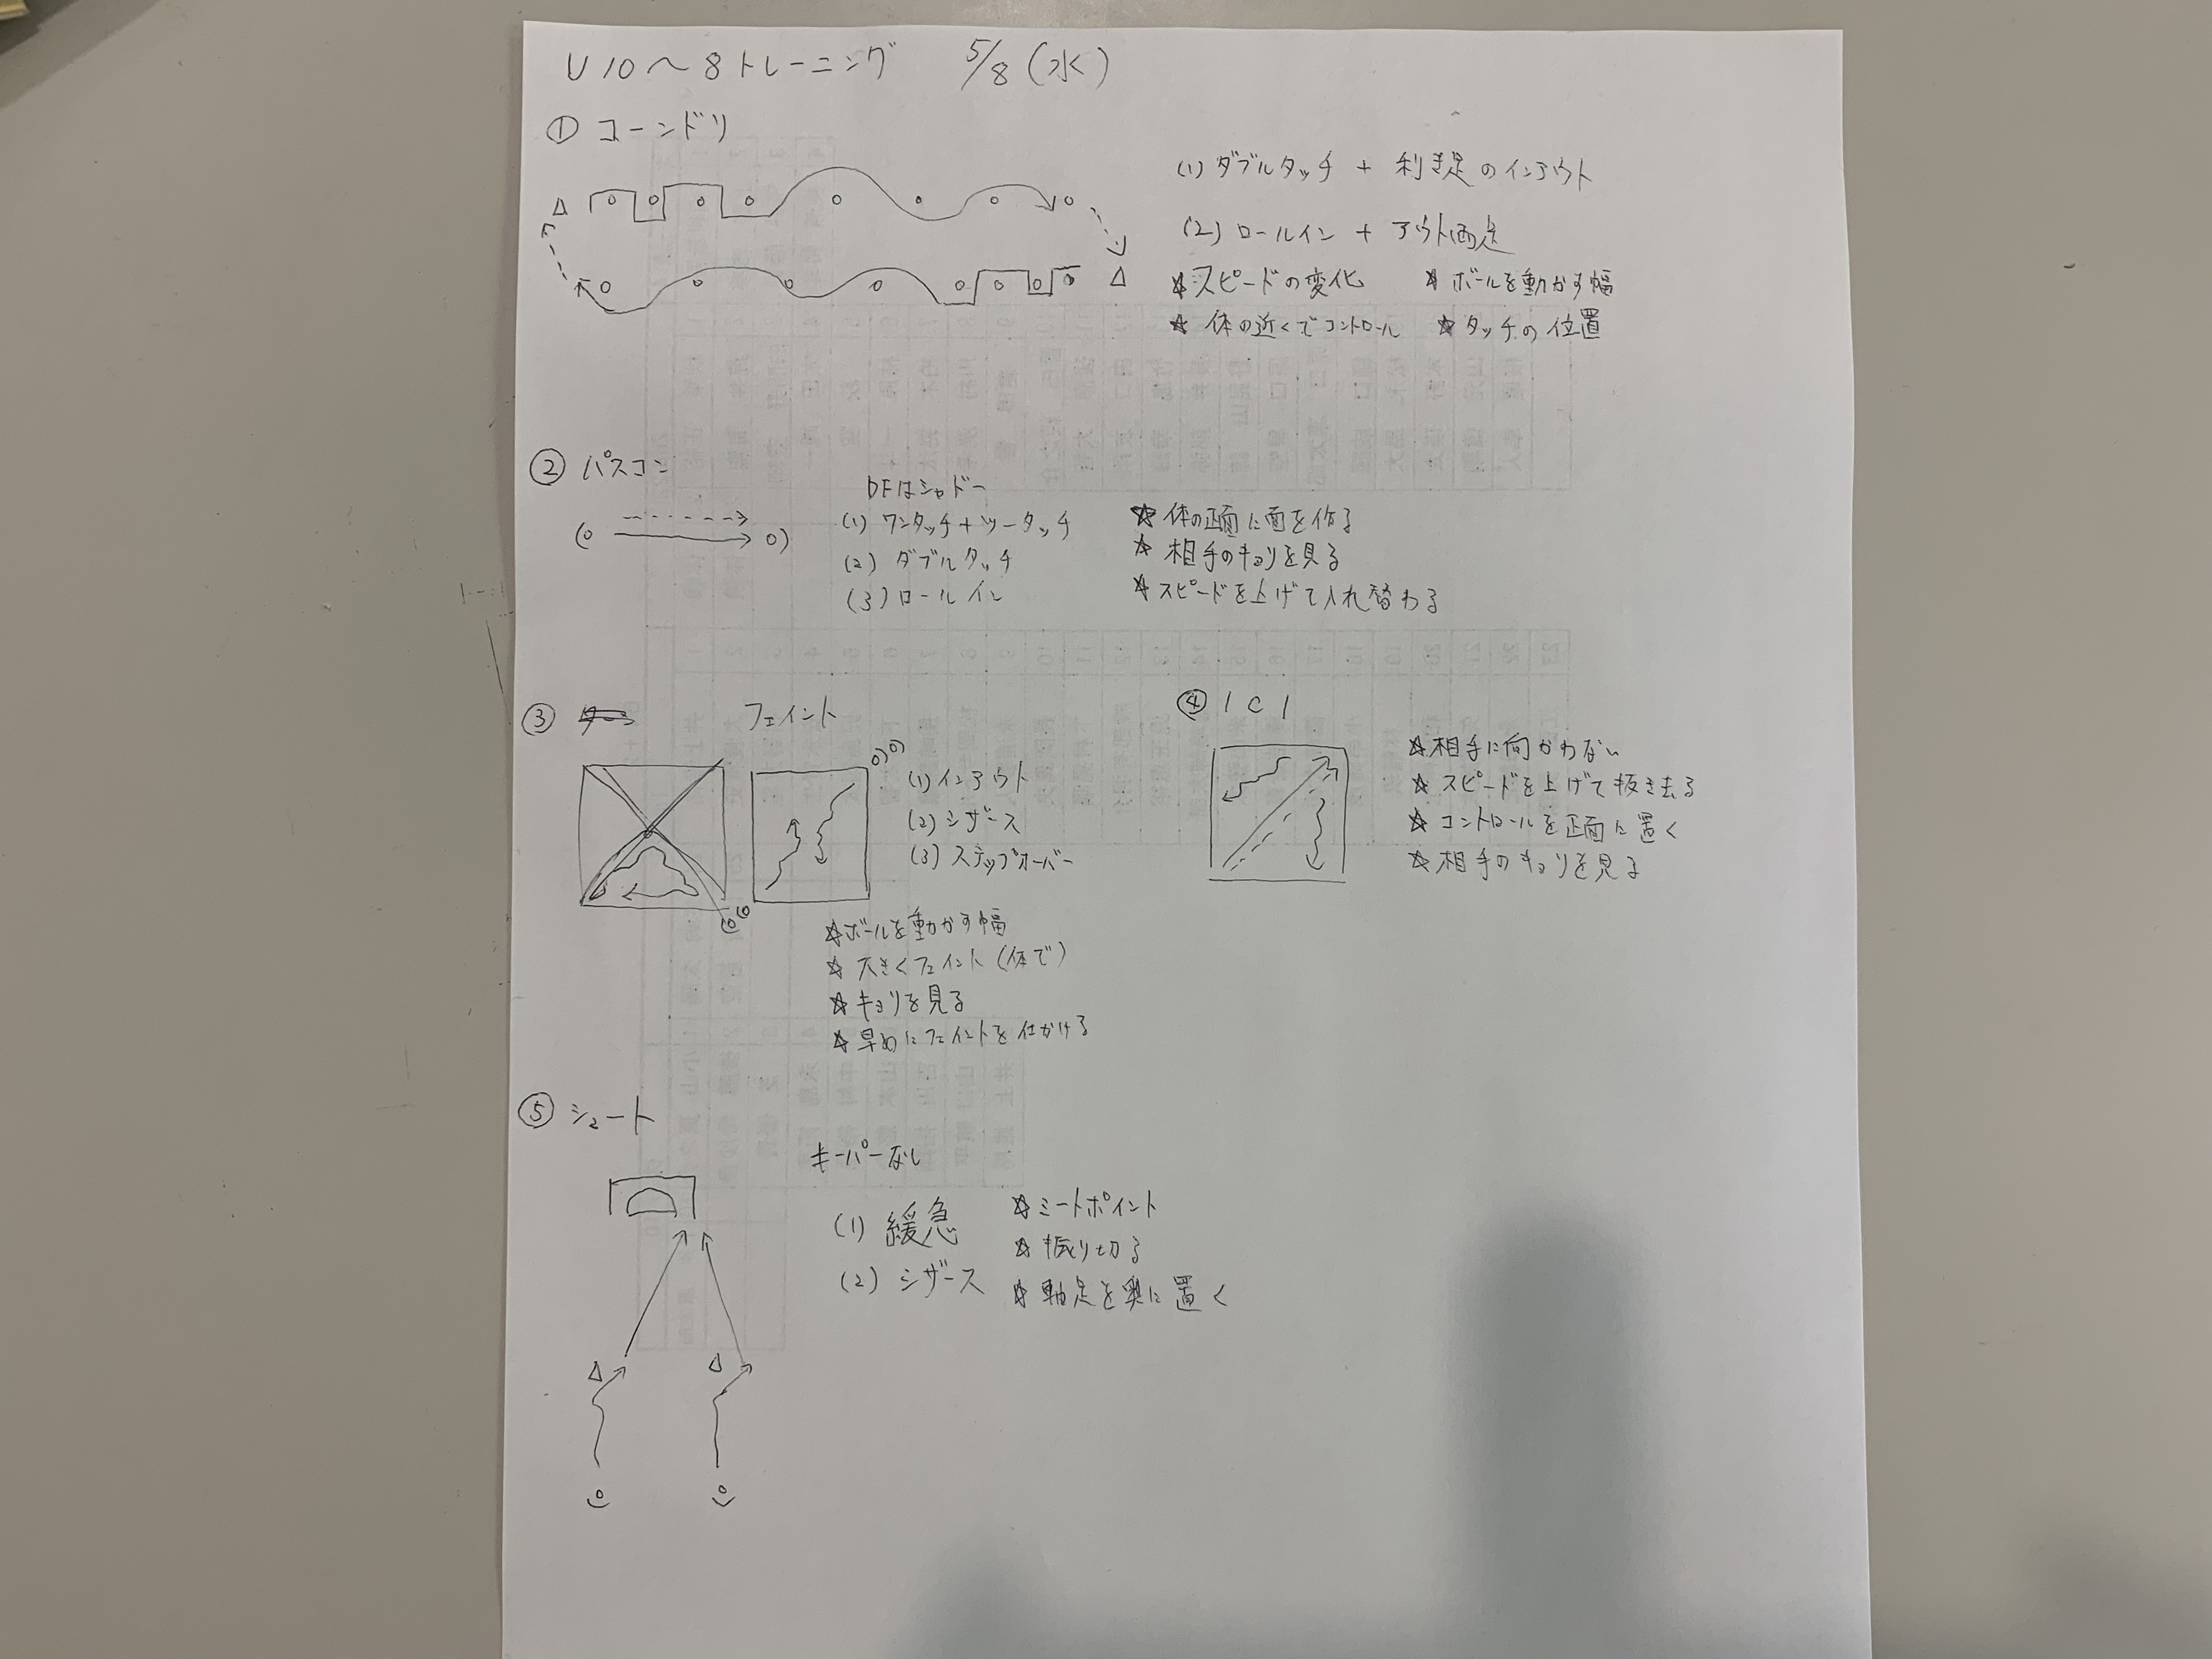 U10〜8トレーニング 5/8(水)
① コーンドリ
(1) ダブルタッチ + 利き足のインアウト
(2) ロールイン + アウト両足
☆スピードの変化 ☆ボールを動かす幅
☆体の近くでコントロール ☆タッチの位置
② パスコン
DFはシャドー
(1) ワンタッチ+ツータッチ
(2) ダブルタッチ
(3) ロールイン
☆体の正面に面を作る
☆相手のキョリを見る
☆スピードを上げて入れ替わる
③ フェイント
(1) インアウト
(2) シザース
(3) ステップオーバー
☆ボールを動かす幅
☆大きくフェイント(体で)
☆キョリを見る
☆早めにフェイントを仕かける
④ 1c1
☆相手に向かわない
☆スピードを上げて抜き去る
☆コントロールを正面に置く
☆相手のキョリを見る
⑤ シュート
キーパーなし
(1) 緩急
(2) シザース
☆ミートポイント
☆振り切る
☆軸足を奥に置く